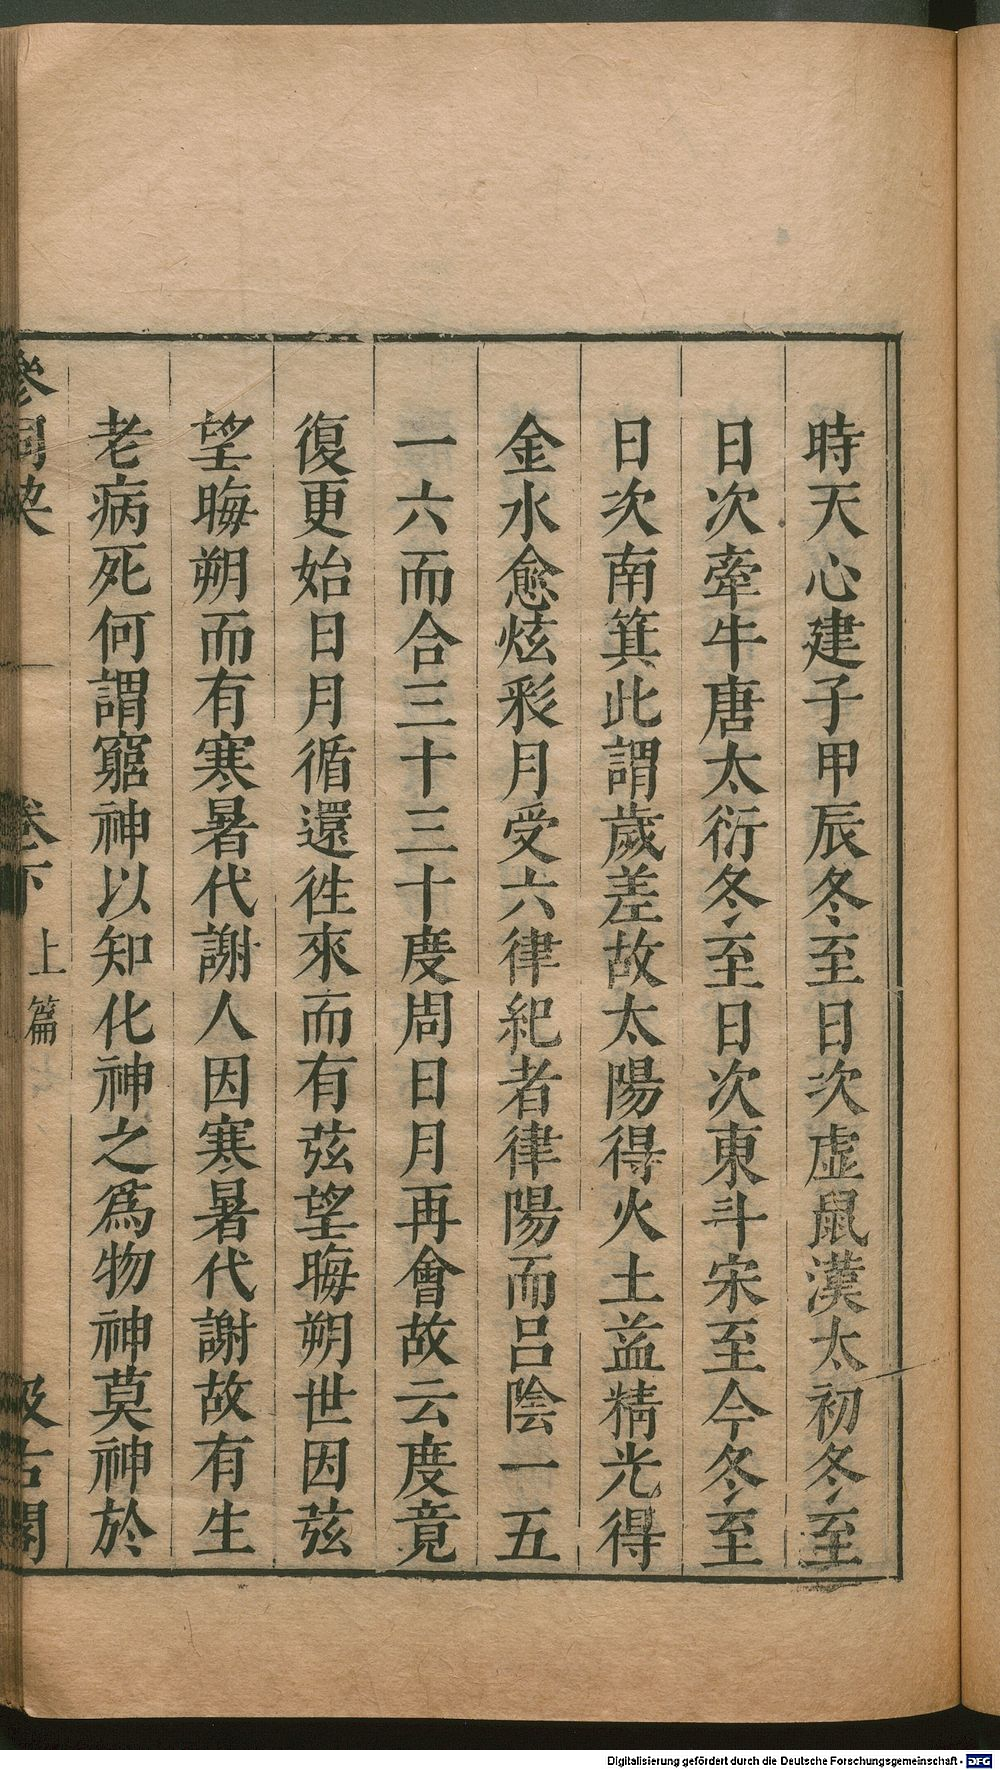 時天心建子甲辰冬至日次虛鼠漢太初冬至
日次牽牛唐太衍冬至日次東斗宋至今冬至
日次南箕此謂歲差故太陽得火土益精光得
金水愈炫彩月受六律紀者律陽而呂陰一五
一六而合三十三十度周日月再會故云度竟
復更始日月循還徃來而有弦望晦朔世因弦
望晦朔而有寒暑代謝人因寒暑代謝故有生
老病死何謂窮神以知化神之爲物神莫神於
參同契 卷下 上篇 汲古閣
Digitalisierung gefördert durch die Deutsche Forschungsgemeinschaft - DFG